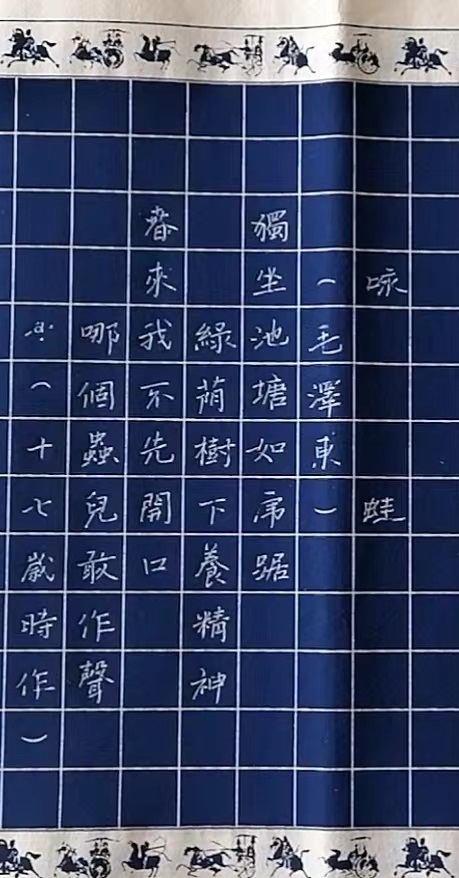 咏蛙
（毛澤東）
獨坐池塘如虎踞
綠蔭樹下養精神
春來我不先開口
哪個蟲兒敢作聲
（十七歲時作）